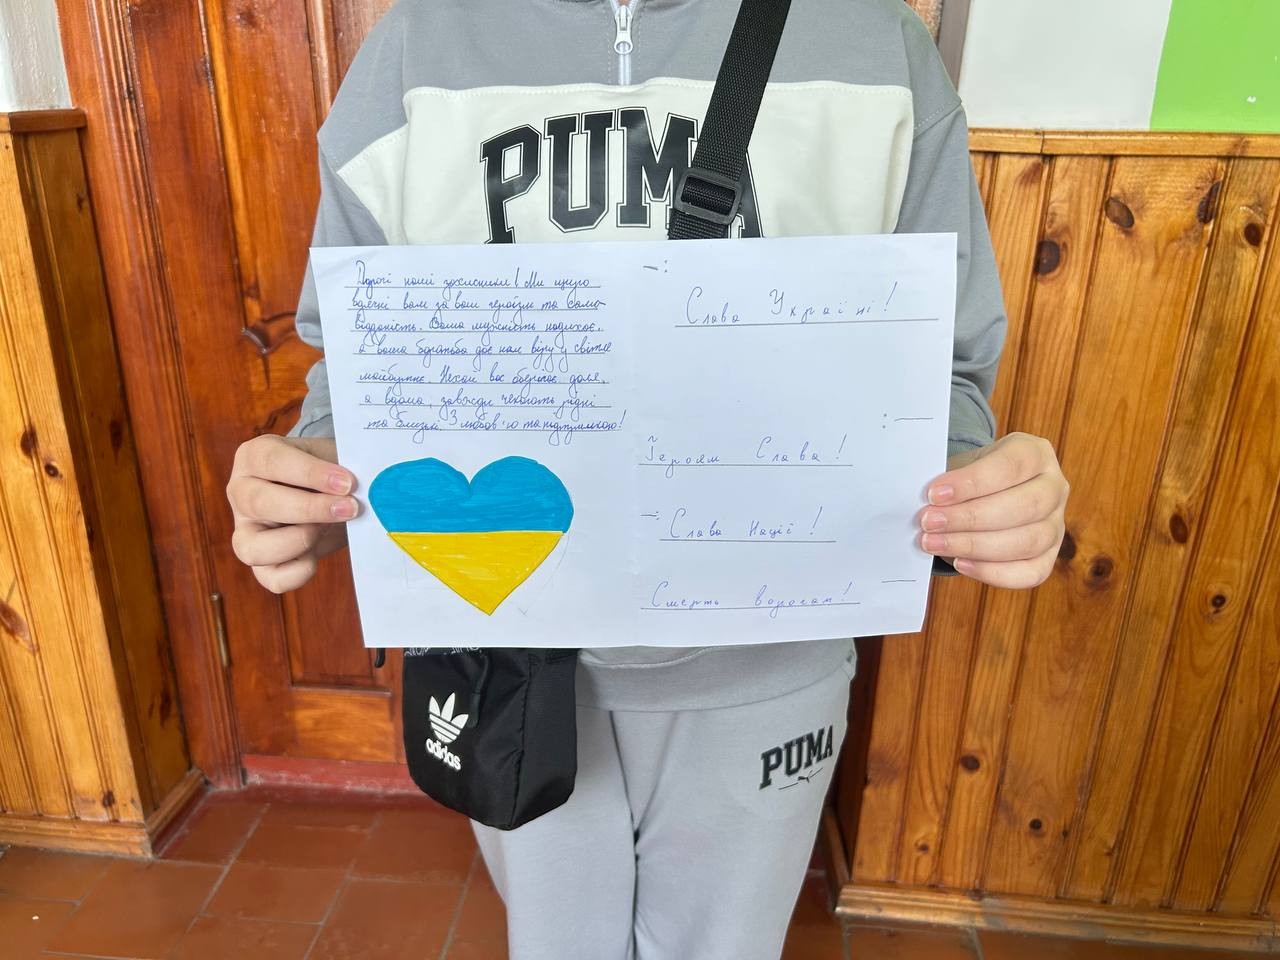 PUMA
Дорогі наші захисники! Ми щиро
вдячні вам за ваш героїзм та само-
відданість. Ваша мужність надихає,
а ваша боротьба дає нам віру у світле
майбутнє. Нехай вас оберігає доля,
а вдома, завжди чекають рідні
та близькі. З любов'ю та підтримкою!
Слава Україні!
Героям Слава!
Слава Нації!
Смерть ворогам!
adidas
PUMA